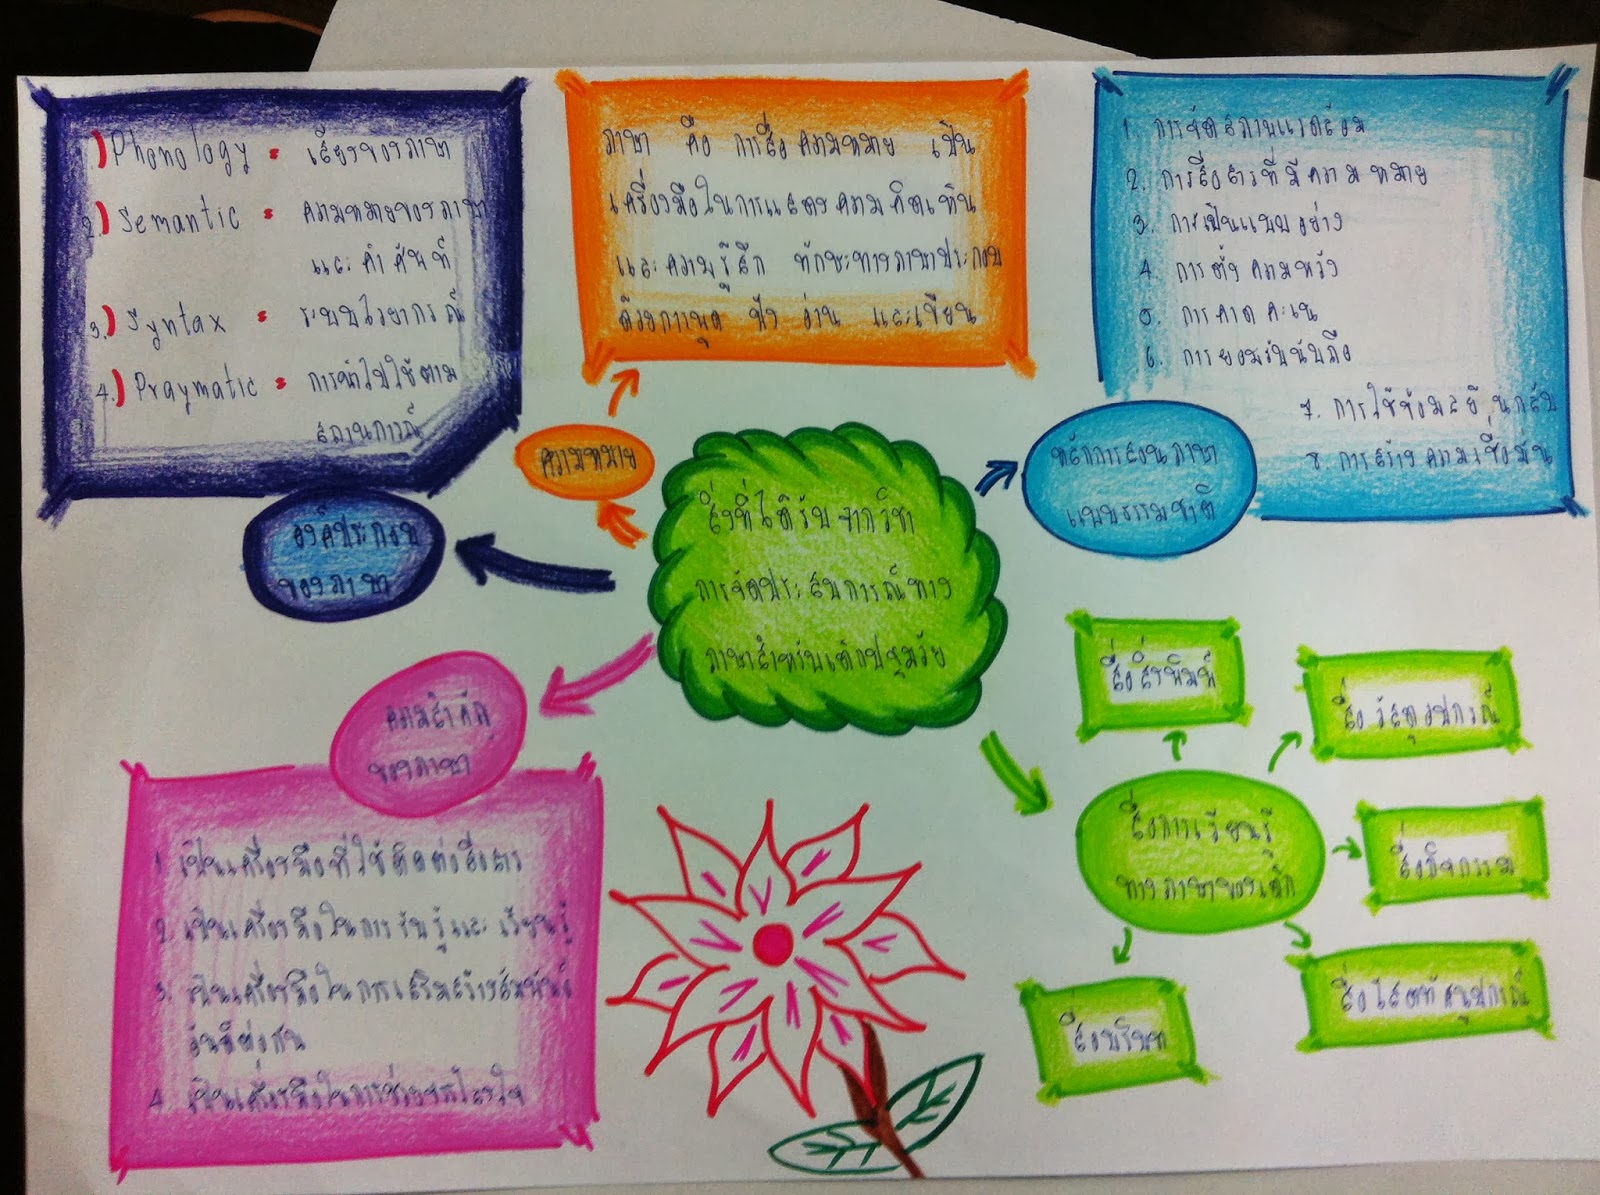 1.) Phonology = เสียงของภาษา
2.) Semantic = ความหมายของภาษา
และคำศัพท์
3.) Syntax = ระบบไวยากรณ์
4.) Praymatic = การนำไปใช้ตาม
สถานการณ์
องค์ประกอบ
ของภาษา
ภาษา คือ การสื่อความหมาย เป็น
เครื่องมือในการแสดงความคิดเห็น
และความรู้สึก ทักษะทางภาษาประกอบ
ด้วยการพูด ฟัง อ่าน และเขียน
ความหมาย
1. การจัดสภาพแวดล้อม
2. การสื่อสารที่มีความหมาย
3. การเป็นแบบอย่าง
4. การตั้งความหวัง
5. การคาดคะเน
6. การยอมรับนับถือ
7. การใช้ข้อมูลย้อนกลับ
8. การสร้างความเชื่อมั่น
หลักการสอนภาษา
แบบธรรมชาติ
สิ่งที่ได้รับจากวิชา
การจัดประสบการณ์ทาง
ภาษาสำหรับเด็กปฐมวัย
ความสำคัญ
ของภาษา
1. เป็นเครื่องมือที่ใช้ติดต่อสื่อสาร
2. เป็นเครื่องมือในการรับรู้และเรียนรู้
3. เป็นเครื่องมือในการเสริมสร้างสัมพันธ์
อันดีต่อกัน
4. เป็นเครื่องมือในการช่วยจรรโลงใจ
สื่อการเรียนรู้
ทางภาษาของเด็ก
สื่อสิ่งพิมพ์
สื่อวัสดุอุปกรณ์
สื่อกิจกรรม
สื่อโสตทัศนูปกรณ์
สื่อบริบท